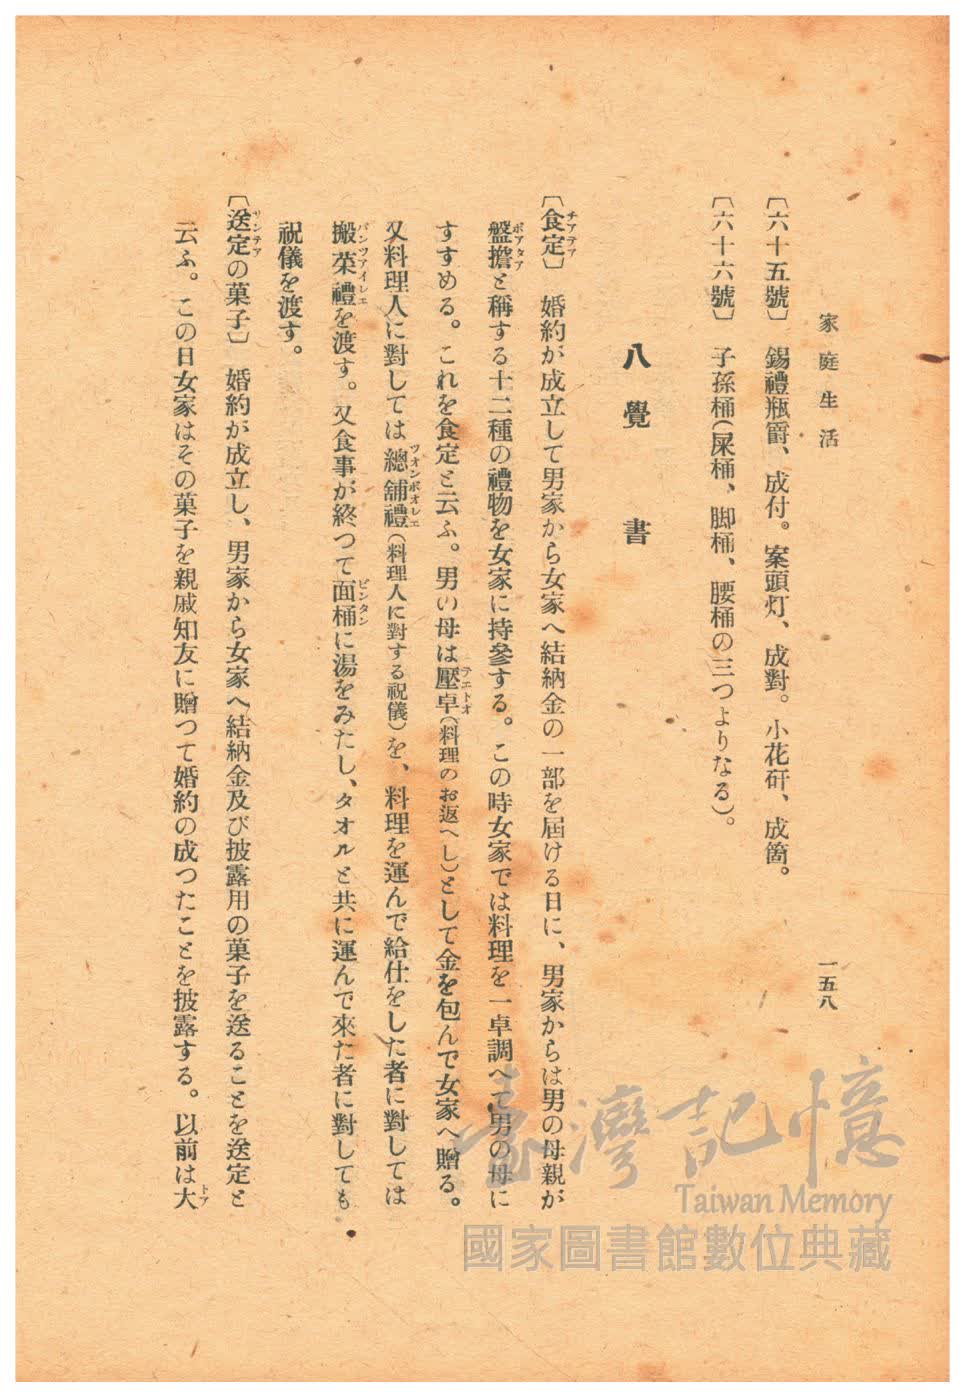 家庭生活
一五八
〔六十五號〕　錫禮瓶爵、成付。案頭灯、成對。小花矸、成箇。
〔六十六號〕　子孫桶（屎桶、脚桶、腰桶の三つよりなる）。
八　覺　書
〔食定〕　婚約が成立して男家から女家へ結納金の一部を屆ける日に、男家からは男の母親が
チアテア
盤擔と稱する十二種の禮物を女家に持參する。この時女家では料理を一卓調へて男の母に
ポアタア
すすめる。これを食定と云ふ。男の母は壓卓（料理のお返へし）として金を包んで女家へ贈る。
テエトオ
又料理人に對しては總舖禮（料理人に對する祝儀）を、料理を運んで給仕をした者に對しては
ツオンポオレエ
搬菜禮を渡す。又食事が終つて面桶に湯をみたし、タオルと共に運んで來た者に對しても
パンツアイレエ
ビンタン
祝儀を渡す。
〔送定の菓子〕　婚約が成立し、男家から女家へ結納金及び披露用の菓子を送ることを送定と
サンテア
云ふ。この日女家はその菓子を親戚知友に贈つて婚約の成つたことを披露する。以前は大
トア
臺灣記憶
Taiwan Memory
國家圖書館數位典藏